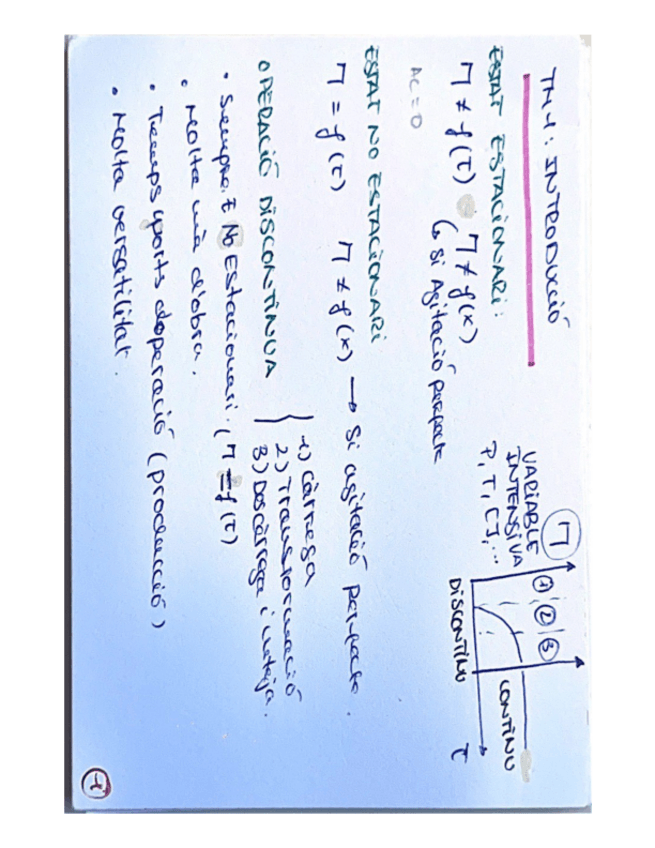 TM 1: INTRODUCCIÓ
ESTAT ESTACIONARI:
Π ≠ f(τ) Π ≠ f(x)
↳ Si Agitació perfecte
AC = 0
Π
VARIABLE
INTENSIVA
P, T, CJ, ...
① ② ③
DISCONTINU
CONTINU
τ
ESTAT NO ESTACIONARI
Π = f(τ) Π ≠ f(x) → Si agitació perfecte.
OPERACIÓ DISCONTINUA
1) Càrrega
2) Transformació
3) Descàrrega i neteja.
• Sempre E No Estacionari. (Π = f(τ)
• Molta mà d'obra.
• Temps morts d'operació (producció)
• Molta versatilitat.
1